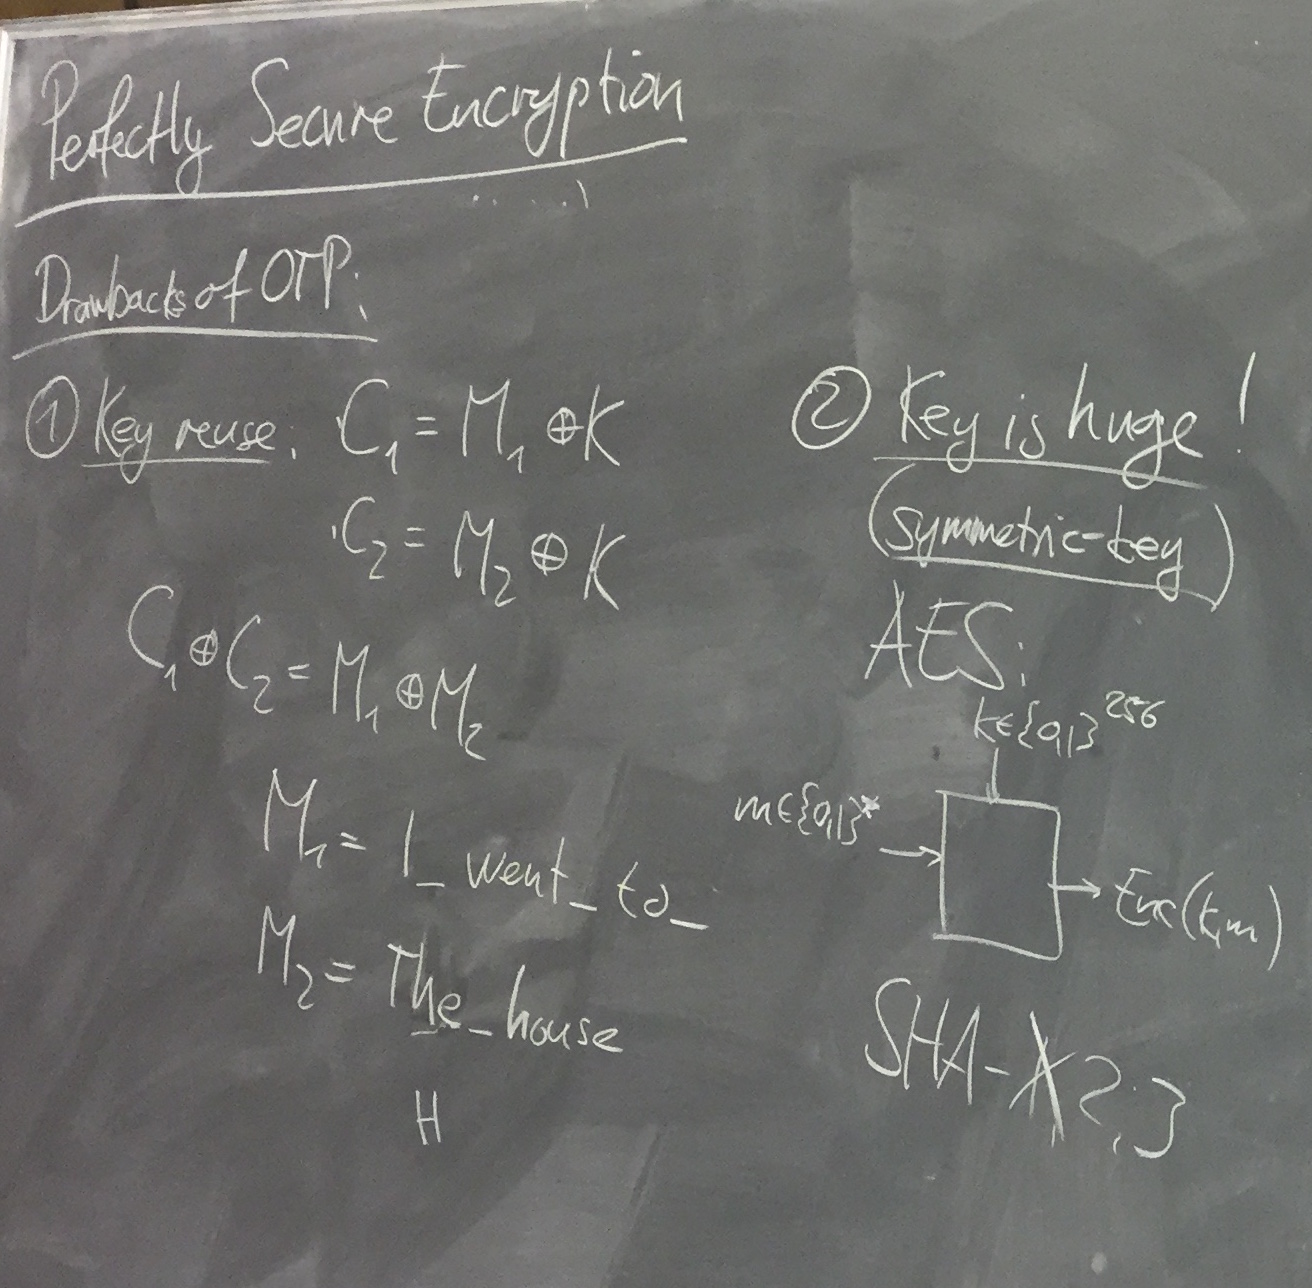 Perfectly Secure Encryption
Drawbacks of OTP:
① Key reuse: C₁ = M₁ ⊕ K
C₂ = M₂ ⊕ K
C₁ ⊕ C₂ = M₁ ⊕ M₂
M₁ = I_went_to_
M₂ = The_house
H
② Key is huge!
(symmetric-key)
AES:
k∈{0,1}²⁵⁶
m∈{0,1}*
Enc(k,m)
SHA-1 2,3